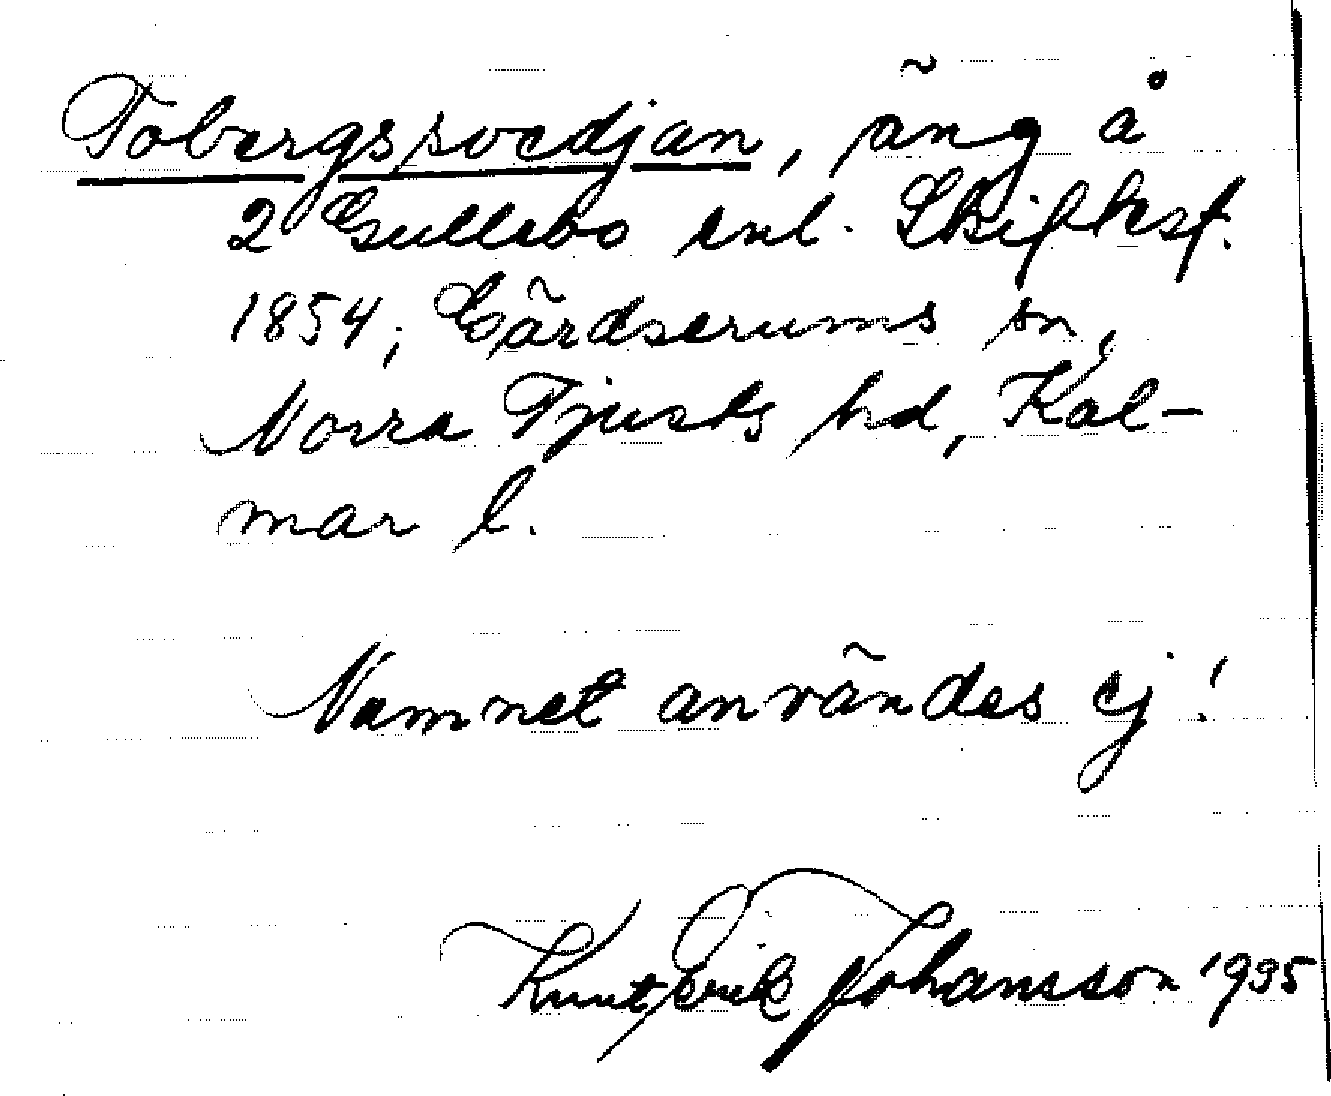 Tobergssvedjan, äng å
2 Gullebo enl. Skifteskst.
1854; Gärdserums sn,
Norra Tjusts hd, Kal-
mar l.
Namnet användes ej!
Knut Erik Johansson 1995